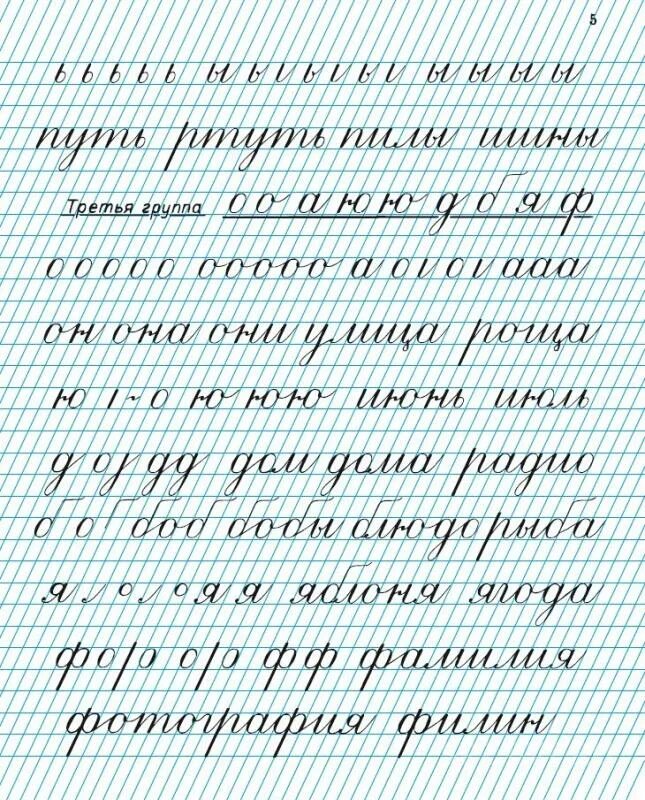 5
ь ь ь ь ь ы ы ı ь ı ь ı ы ы ы ы
путь ртуть пилы шины
Третья группа о о а ю ю д б я ф
о о о о о о о о о о а о ı о ı а а а
он она они улица роща
ю ı ~ о ю ю ю июнь июль
д о ȷ д д дом дома радио
б о б о б бобы блюдо рыба
я о о я я яблоня ягода
ф о р о р ф ф фамилия
фотография филин